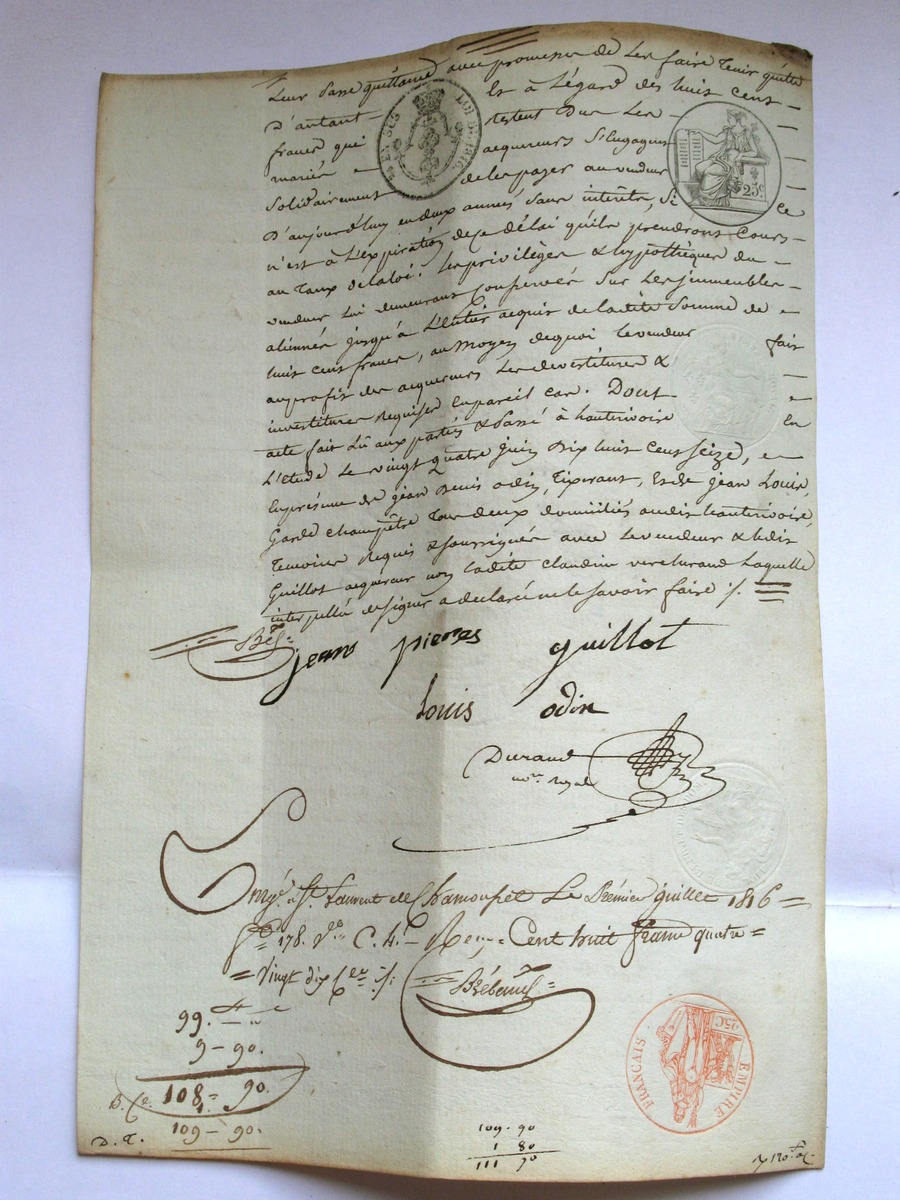 leur passe quittance avec promesse de les faire tenir quitte
d'autant Et à Légard des huit cent
francs qui restent Dus Les
mariés acquereurs S'Engagent
Solidairement de les payer au vendeur
D'aujourd'huy en deux années sans interêts, Si ce
n'est à L'expiration de ce délai qu'ils prendront Cours
au Taux de la loi. Les privilèges & hypothèques du
vendeur Lui demeurant Conservés Sur Les jmmeubles
aliennés jusqu'à L'Entier acquit de ladite Somme de
huit cent francs, au moyen de quoi le vendeur fait
au profit des acquereurs Les devestitures &
investitures Requises En pareil cas. Dont En
acte fait Lû aux parties & Passé à hauterivoire
L'étude Le vingt quatre juin Dix huit Cent Seize, en
En présence de jean Denis odin, Tixerant, Et de jean Louis,
Garde champêtre Tous deux domiciliés audit hauterivoire,
Temoins Requis & soussignés avec Le vendeur & ledit
Guillot acquéreur non ladite claudine Laquelle
interpellée de signer a declaré ne le savoir faire ./.
EN SUS LOI DE 1816.
25c
jean pierres guillot
Louis odin
Durand
nore. royal
Enrgé. à St. Laurent de Chamousset Le Prémier juillet 1816
fo 178. Vo. C. 4. Reçu Cent huit francs quatre
Vingt dix Ces ./.
99.
9-90.
108. 90.
1.
109-90.
D. T.
109. 90
1 80
111 70
EMPIRE FRANCAIS
25C